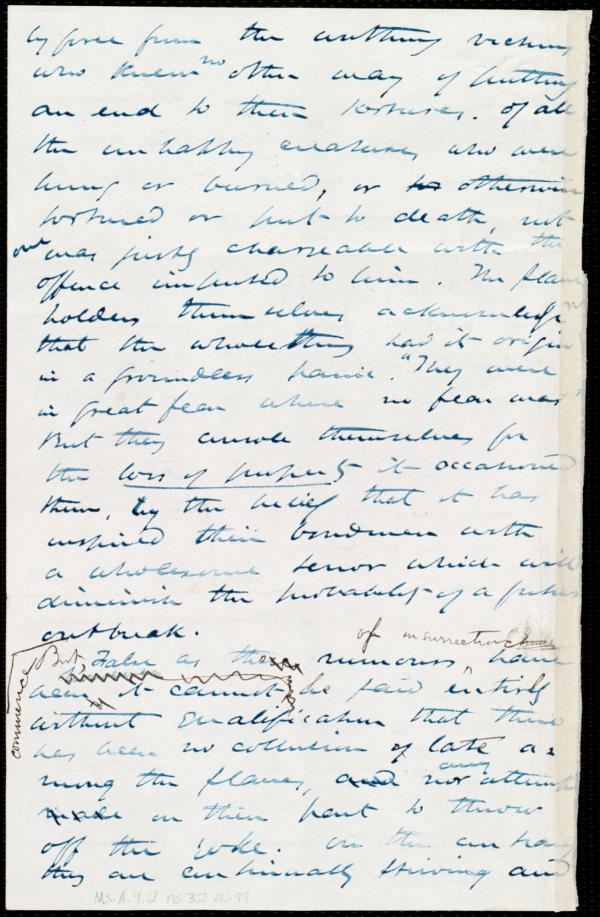 by force from the writhing victims
who knew no other way of putting
an end to their tortures. Of all
the unhappy creatures who were
hung or burned, or otherwise
tortured or put to death, not
one was justly chargeable with the
offence imputed to him. The slave
holders themselves acknowledge
that the whole thing had its origin
in a groundless panic. "They were
in great fear where no fear was
But they console themselves for
the loss of property it occasioned
them, by the belief that it has
inspired their bondmen with
a wholesome terror which will
diminish the probability of a future
outbreak.
of insurrection
But, False as the rumours, have
been, it cannot be said entirely
commence
without qualification that there
has been no collusion of late a=
mong the slaves, nor any attempt
made on their part to throw
off the yoke. On the contrary
they are continually striving and
Ms.A.9.2 no.32 no.99